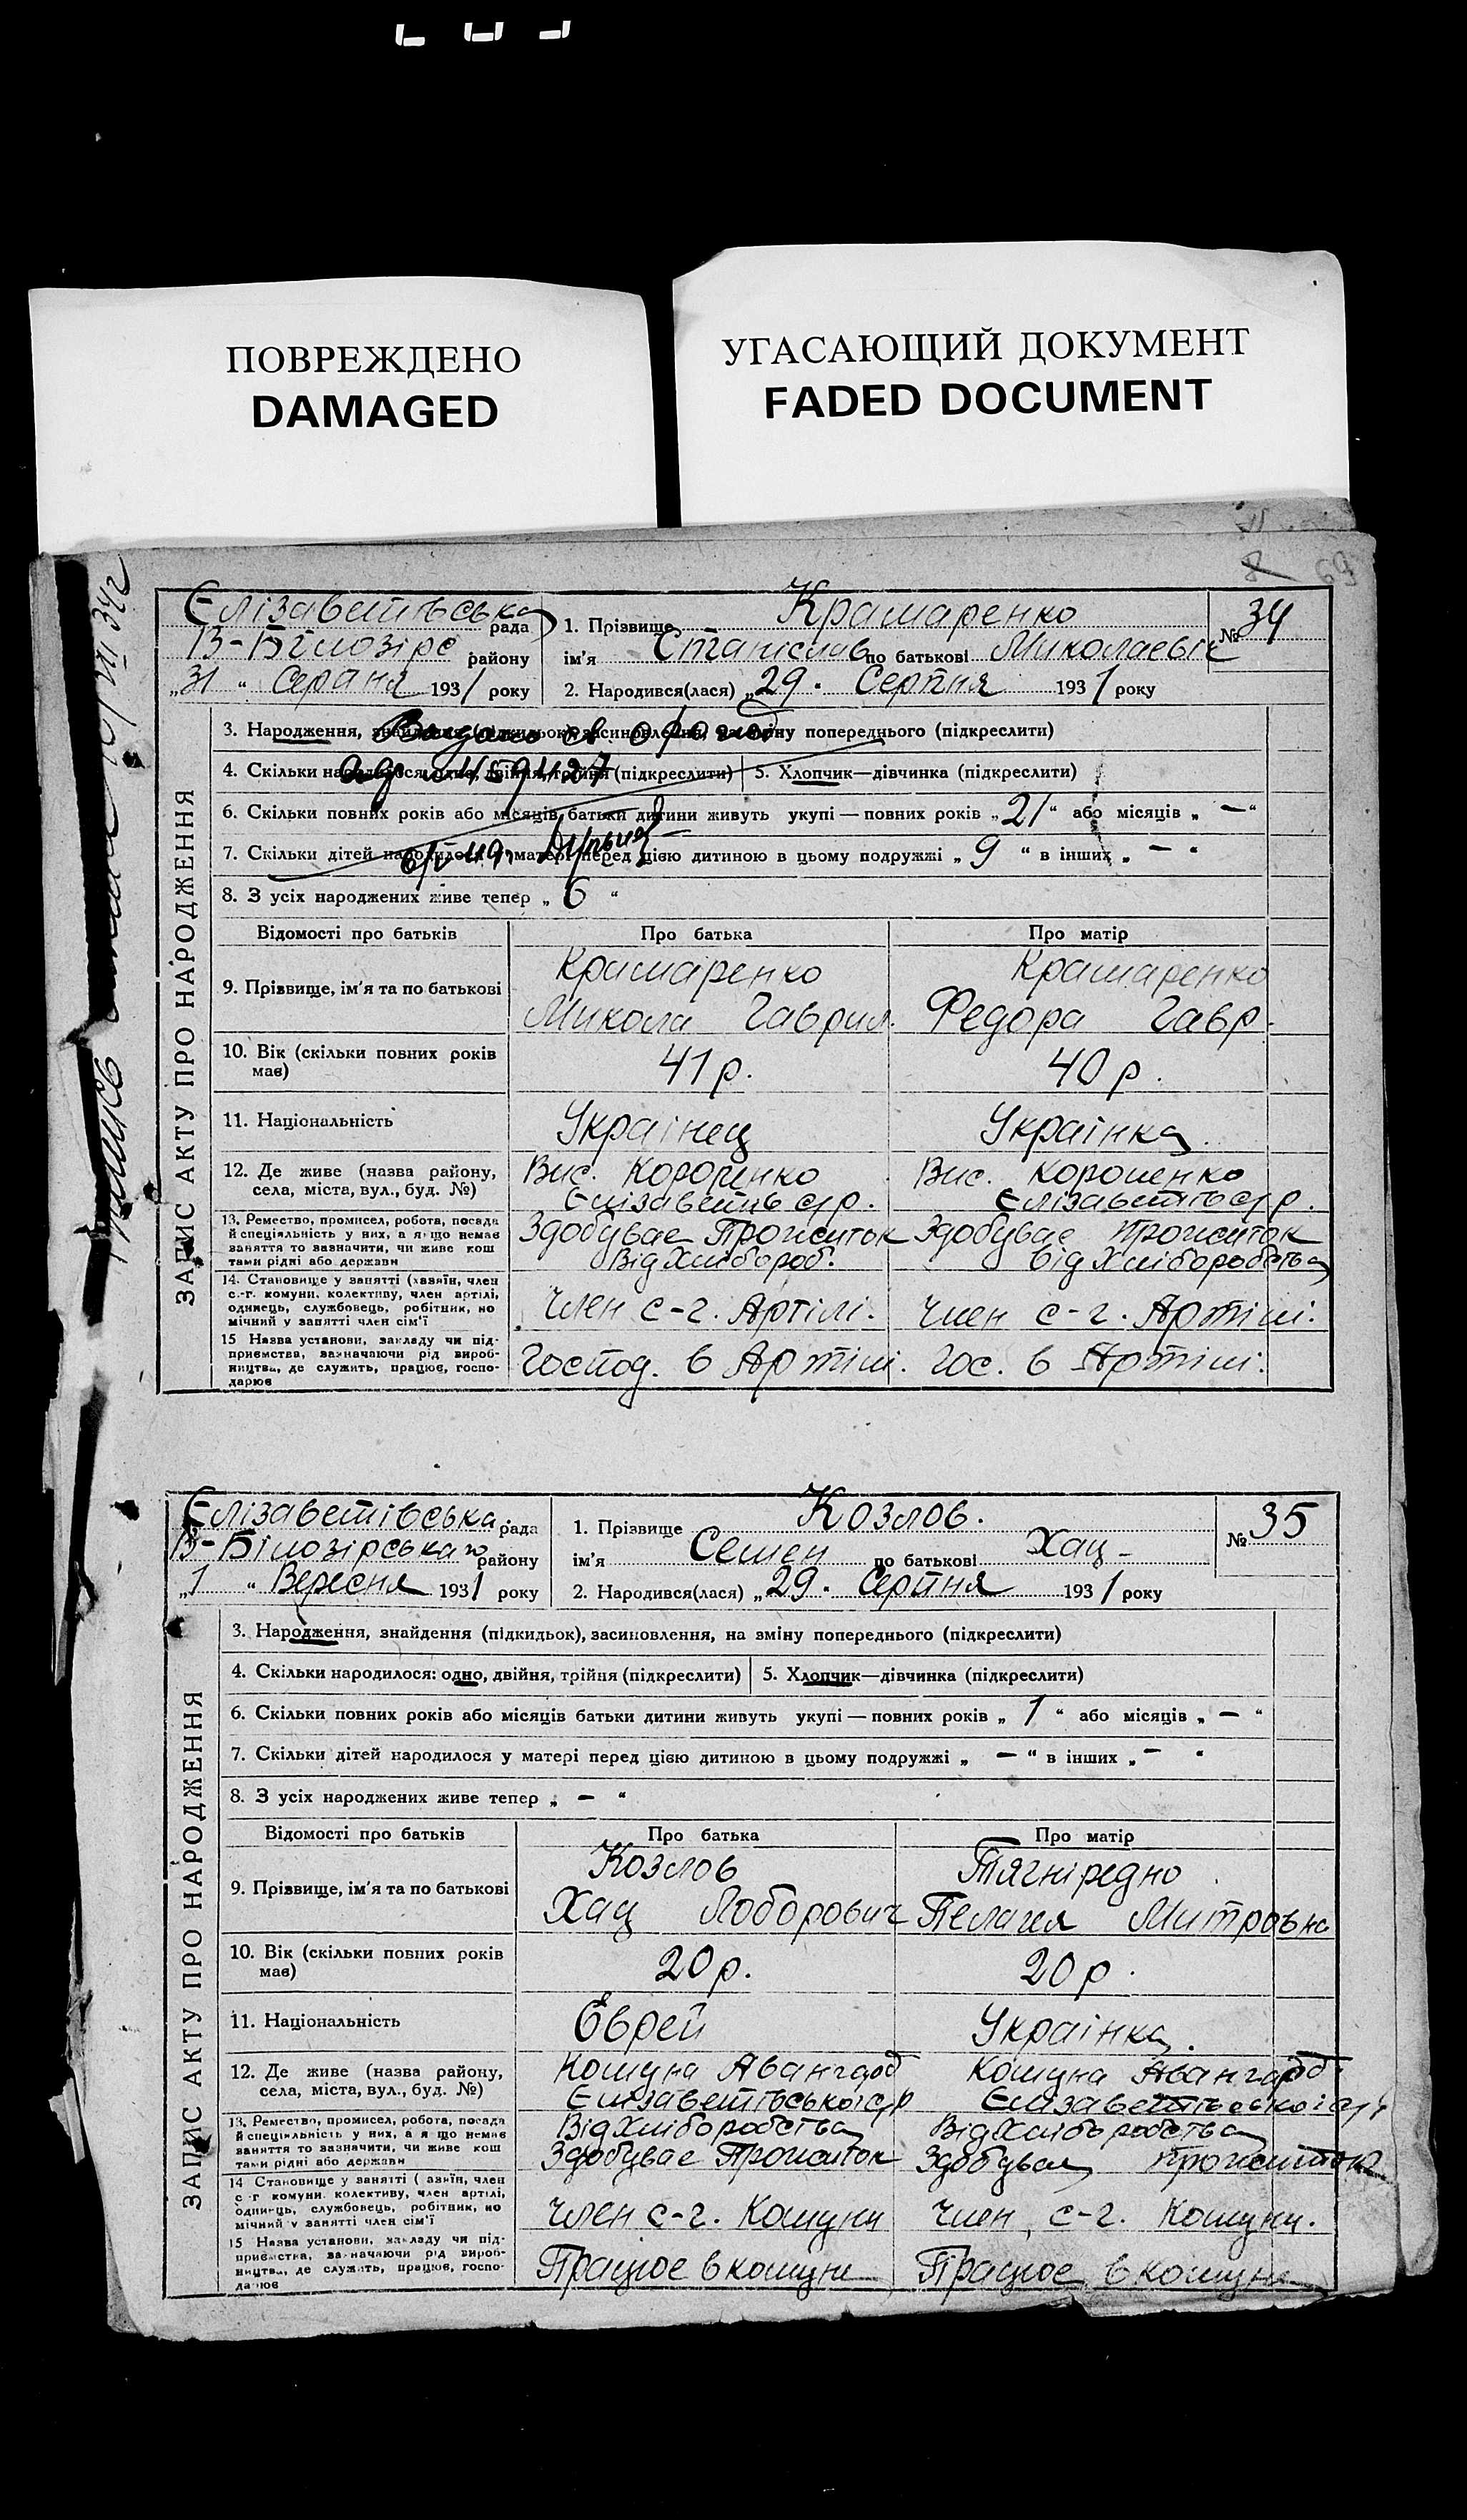 ПОВРЕЖДЕНО
DAMAGED
УГАСАЮЩИЙ ДОКУМЕНТ
FADED DOCUMENT
69
ЗАПИС АКТУ ПРО НАРОДЖЕННЯ
Єлізаветівська рада
В-Білозірс району
„31“ Серпня 1931 року
1. Прізвище Крамаренко
№ 34
ім'я Станіслав по батькові Миколаевіч
2. Народився(лася) „29. Серпня 1931 року
3. Народження, знайдення (підкидьок), засиновлення, на зміну попереднього (підкреслити)
4. Скільки народилося: одно, двійня, трійня (підкреслити) 5. Хлопчик—дівчинка (підкреслити)
6. Скільки повних років або місяців батьки дитини живуть укупі — повних років „21“ або місяців „—“
7. Скільки дітей народилося у матері перед цією дитиною в цьому подружжі „9“ в інших „—“
8. З усіх народжених живе тепер „6“
Відомості про батьків Про батька Про матір
9. Прізвище, ім'я та по батькові
Крамаренко Крамаренко
Микола Гаврил. Федора Гавр.
10. Вік (скільки повних років має) 41 р. 40 р.
11. Національність Українец Українка
12. Де живе (назва району, села, міста, вул., буд. №)
Вис. Короленко Вис. Короленко
Єлізаветівс/р. Єлізаветівс/р.
13. Ремество, промисел, робота, посада й спеціяльність у них, а якщо немає заняття то зазначити, чи живе коштами рідні або держави
Здобувае Прожиток Здобувае Прожиток
Від Хлібороб. від Хліборобства
14. Становище у занятті (хазяїн, член с.-г. комуни, колективу, член артілі, одинець, службовець, робітник, помічний у занятті член сім'ї
Член с-г. Артілі. Член с-г. Артілі.
15 Назва установи, закладу чи підприємства, зазначаючи рід виробництва, де служить, працює, господарює
Господ. в Артілі. Гос. в Артілі.
ЗАПИС АКТУ ПРО НАРОДЖЕННЯ
Єлізаветівська рада
В-Білозірського району
„1“ Вересня 1931 року
1. Прізвище Козлов.
№ 35
ім'я Семен по батькові Хац-
2. Народився(лася) „29. Серпня 1931 року
3. Народження, знайдення (підкидьок), засиновлення, на зміну попереднього (підкреслити)
4. Скільки народилося: одно, двійня, трійня (підкреслити) 5. Хлопчик—дівчинка (підкреслити)
6. Скільки повних років або місяців батьки дитини живуть укупі — повних років „1“ або місяців „—“
7. Скільки дітей народилося у матері перед цією дитиною в цьому подружжі „—“ в інших „—“
8. З усіх народжених живе тепер „—“
Відомості про батьків Про батька Про матір
9. Прізвище, ім'я та по батькові
Козлов Тягніредно
Хац Лоборович Пелагея Митровна
10. Вік (скільки повних років має) 20 р. 20 р.
11. Національність Єврей Українка.
12. Де живе (назва району, села, міста, вул., буд. №)
Комуна Авангард Комуна Авангард.
Єлізаветівськоі с/р Єлізаветівськоі с/р
13. Ремество, промисел, робота, посада й спеціяльність у них, а якщо немає заняття то зазначити, чи живе коштами рідні або держави
Від Хліборобства Від Хліборобства
Здобувае Прожиток Здобувае прожиток
14 Становище у занятті (хазяїн, член с.-г. комуни, колективу, член артілі, одинець, службовець, робітник, помічний у занятті член сім'ї
Член с-г. Комуни Член с-г. Комуни.
15 Назва установи, закладу чи підприємства, зазначаючи рід виробництва, де служить, працює, господарює
Працюе в комуні Працюе в комуні